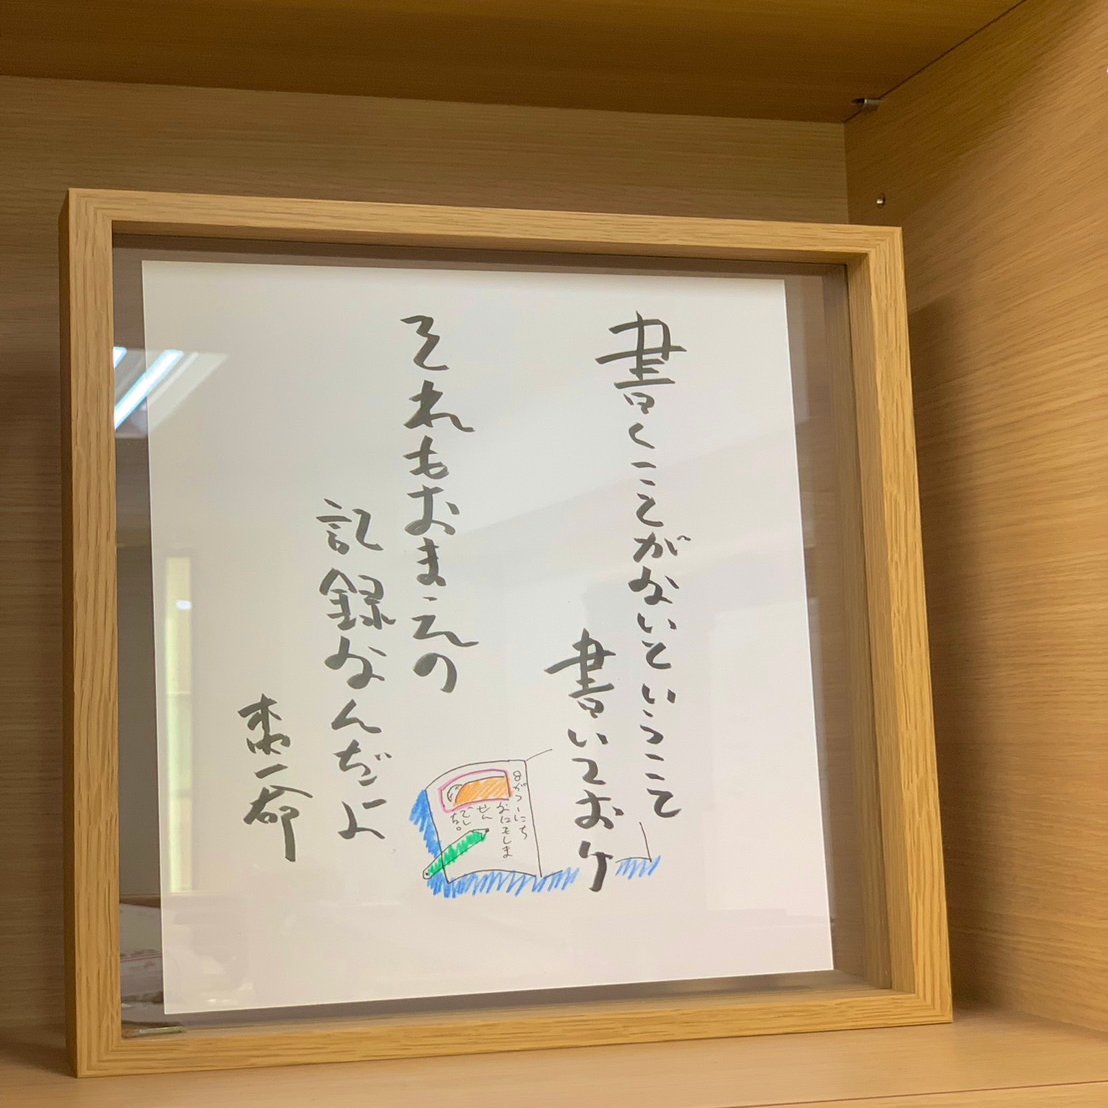 書くことがないということ
書いておけ
それもおまえの
記録なんだよ
8がつ一にち
なにもしま
せん
でした。